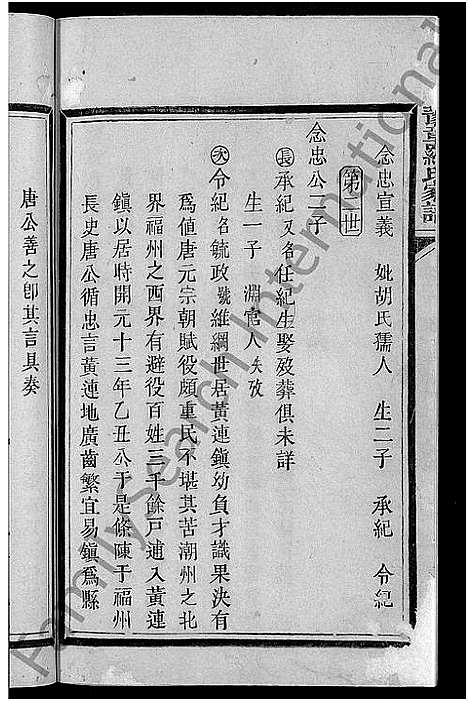 豫章羅氏家譜
念忠宣義 妣胡氏孺人 生二子 承紀 令紀
第二世
念忠公二子
長承紀又名任紀生娶歿葬俱未詳
生一子 淵官人失攷
次令紀名毓政號維綱世居黃連鎮幼負才識果決有
爲值唐元宗朝賦役頗重民不堪其苦潮州之北
界福州之西界有避役百姓三千餘戸逋入黃連
鎮以居時開元十三年乙丑公于是條陳于福州
長史唐公循忠言黃蓮地廣齒繁宜易鎮爲縣
唐公善之卽其言具奏
FamilySearch International